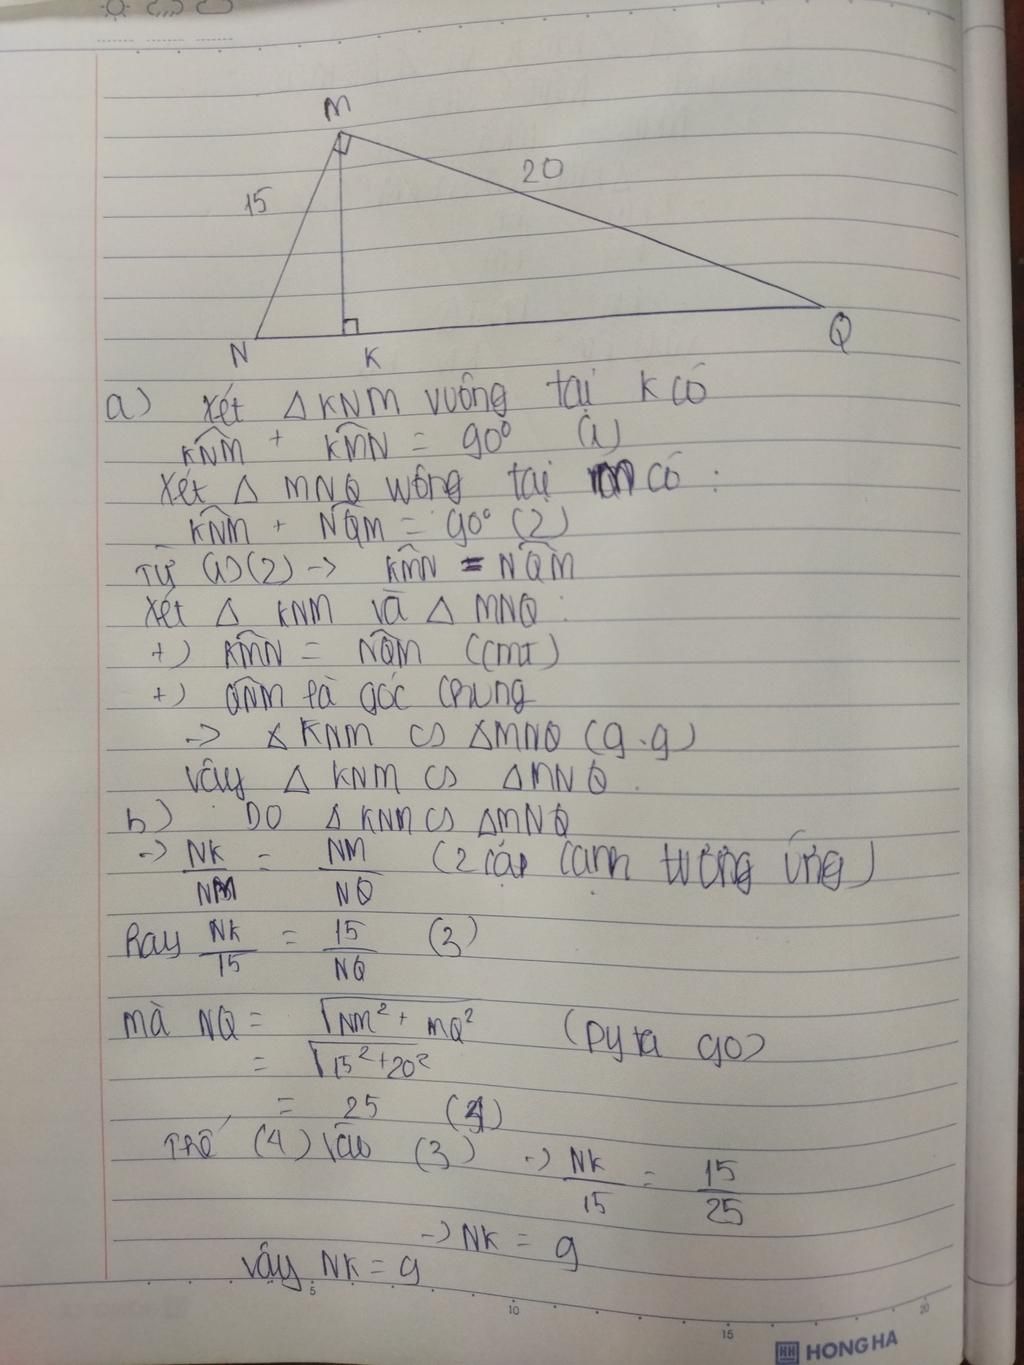 M
15
20
N
K
Q
a) Xét △KNM vuông tại K có
KNM + KMN = 90° (1)
Xét △ MNQ vuông tại M có :
KNM + NQM = 90° (2)
Từ (1)(2) -> KMN = NQM
Xét △ KNM và △ MNQ :
+) KMN = NQM (cmt)
+) QNM là góc chung
-> △KNM ∽ △MNQ (g.g)
Vậy △ KNM ∽ △MNQ .
b) DO △KNM ∽ △MNQ
-> NK/NM = NM/NQ (2 cặp cạnh tương ứng)
hay NK/15 = 15/NQ (3)
mà NQ = √NM² + MQ² (Pytago)
= √15²+20²
= 25 (4)
Thế (4) vào (3) -> NK/15 = 15/25
-> NK = 9
Vậy NK = 9
5 10 15 20
HH HONG HA